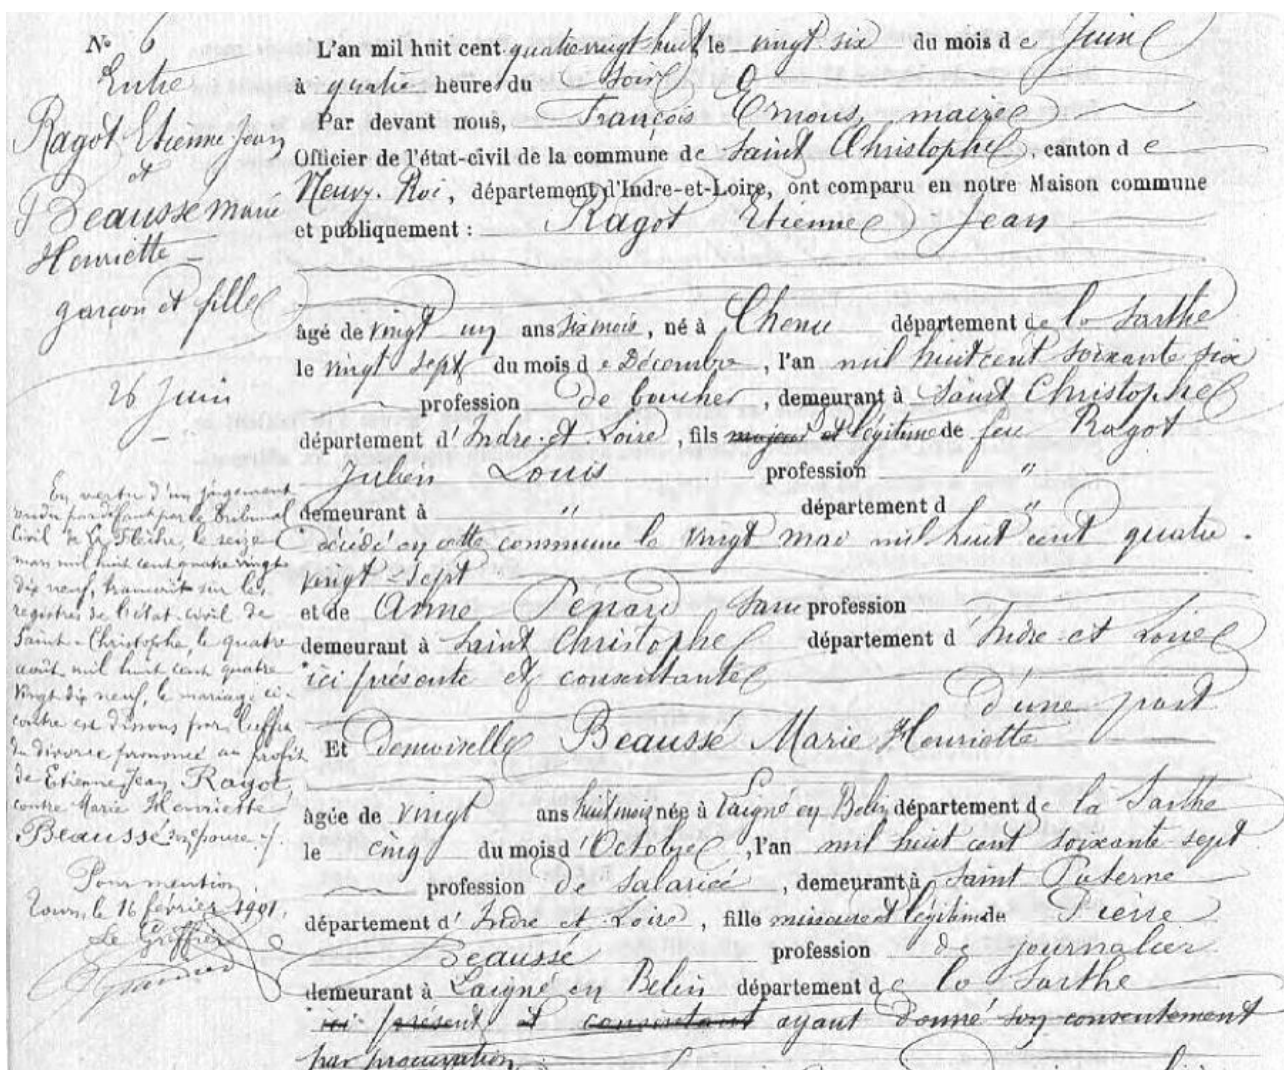 N° 6
Entre
Ragot Etienne Jean
et
Beausse Marie
Henriette
garçon et fille
26 Juin
En vertu d'un jugement
rendu par défaut par le Tribunal
Civil de La Flèche, le seize
mars mil huit cent quatre vingt
dix neuf, transcrit sur les
registres de l'état civil de
Saint-Christophe, le quatre
août mil huit cent quatre
vingt dix neuf, le mariage ci-
contre est dissous par l'effet
du divorce prononcé au profit
de Etienne Jean Ragot,
contre Marie Henriette
Beaussé son épouse ./.
Pour mention
Tours, le 16 février 1901,
Le Greffier
L'an mil huit cent quatre vingt huit le vingt six du mois de Juin
à quatre heures du soir
Par devant nous, François Ernous, maire
Officier de l'état-civil de la commune de Saint Christophe, canton de
Neuvy-Roi, département d'Indre-et-Loire, ont comparu en notre Maison commune
et publiquement : Ragot Etienne Jean
âgé de vingt un ans six mois, né à Chenu département de la Sarthe
le vingt sept du mois de Décembre, l'an mil huit cent soixante six
profession de boucher, demeurant à Saint Christophe
département d'Indre-et-Loire, fils majeur et légitime de feu Ragot
Julien Louis profession "
demeurant à " département d "
décédé en cette commune le vingt mai mil huit cent quatre
vingt-sept
et de Anne Pénard sans profession
demeurant à Saint Christophe département d'Indre et Loire
ici présente et consentante
d'une part
Et Demoiselle Beaussé Marie Henriette
âgée de vingt ans huit mois née à Laigné en Belin département de la Sarthe
le cinq du mois d'Octobre, l'an mil huit cent soixante sept
profession de salariée, demeurant à Saint Paterne
département d'Indre et Loire, fille mineure et légitime de Pierre
Beaussé profession de journalier
demeurant à Laigné en Belin département de la Sarthe
ici présent et consentant ayant donné son consentement
par procuration